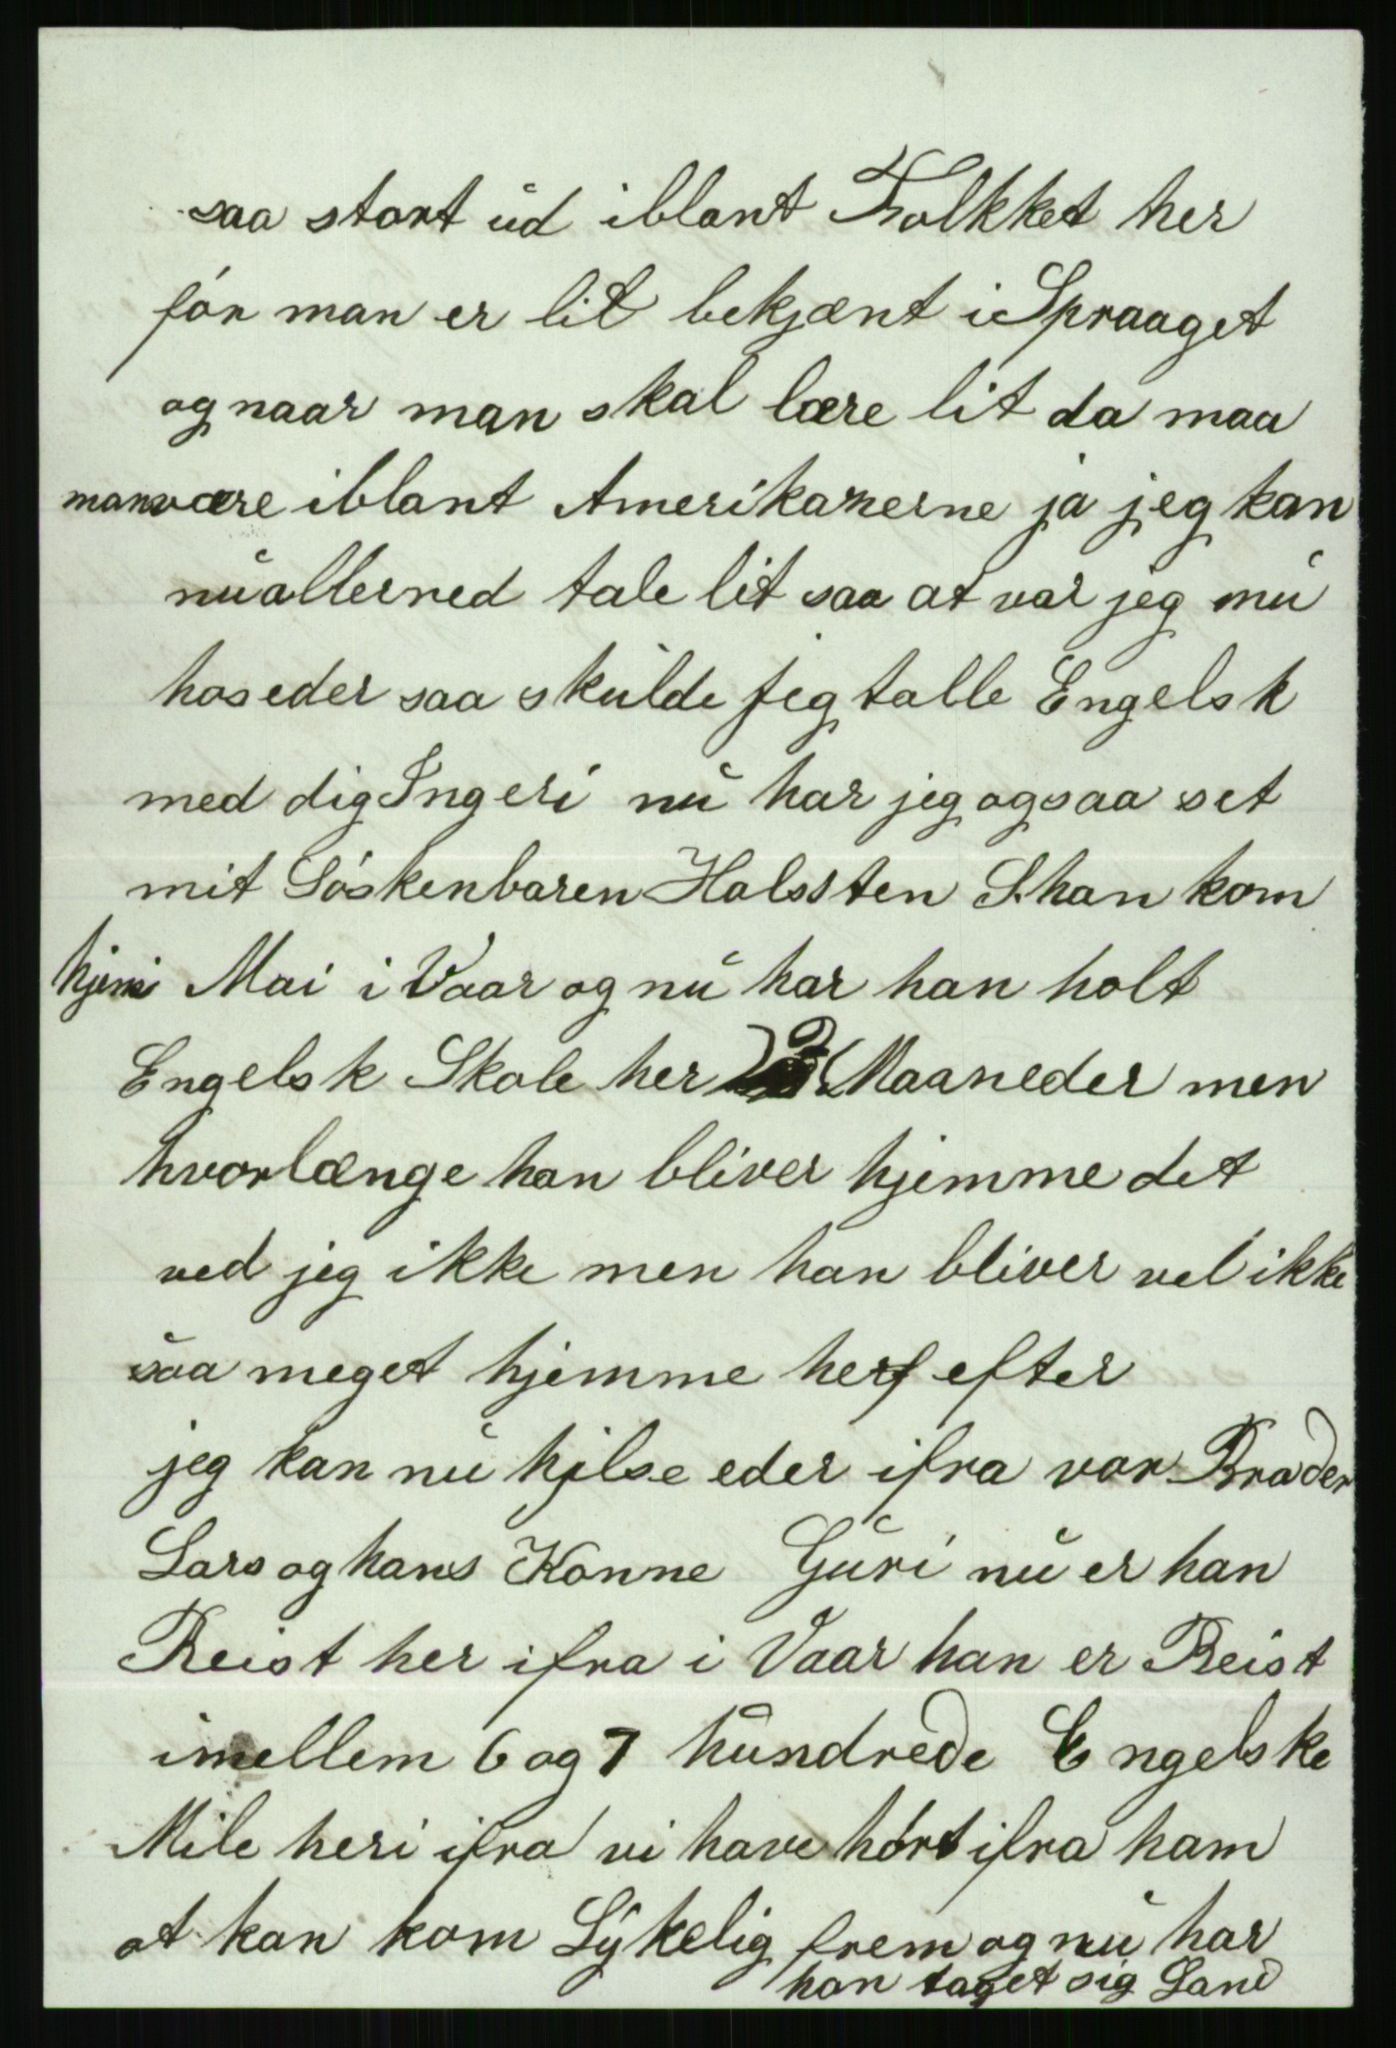 saa stort ud iblant Folkket her
før man er lit bekjænt i Spraaget
og naar man skal lære lit da maa
man være iblant Amerikanerne ja jeg kan
nu allerned tale lit saa at var jeg nu
hos eder saa skulde jeg talle Engelsk
med dig Ingeri nu har jeg ogsaa set
mit Søskenbaren Halssten S. han kom
hjem i Mai i Vaar og nu har han holt
Engelsk Skole her 2 Maaneder men
hvorlænge han bliver hjemme det
ved jeg ikke men han bliver vel ikke
saa meget hjemme her efter
jeg kan nu hjilse eder ifra vor Broder
Lars og hans Konne Guri nu er han
Reist her ifra i Vaar han er Reist
imellem 6 og 7 hundrede Engelske
Mile heri ifra vi have hørt ifra ham
at han kom Lykelig frem og nu har
han taget sig Land